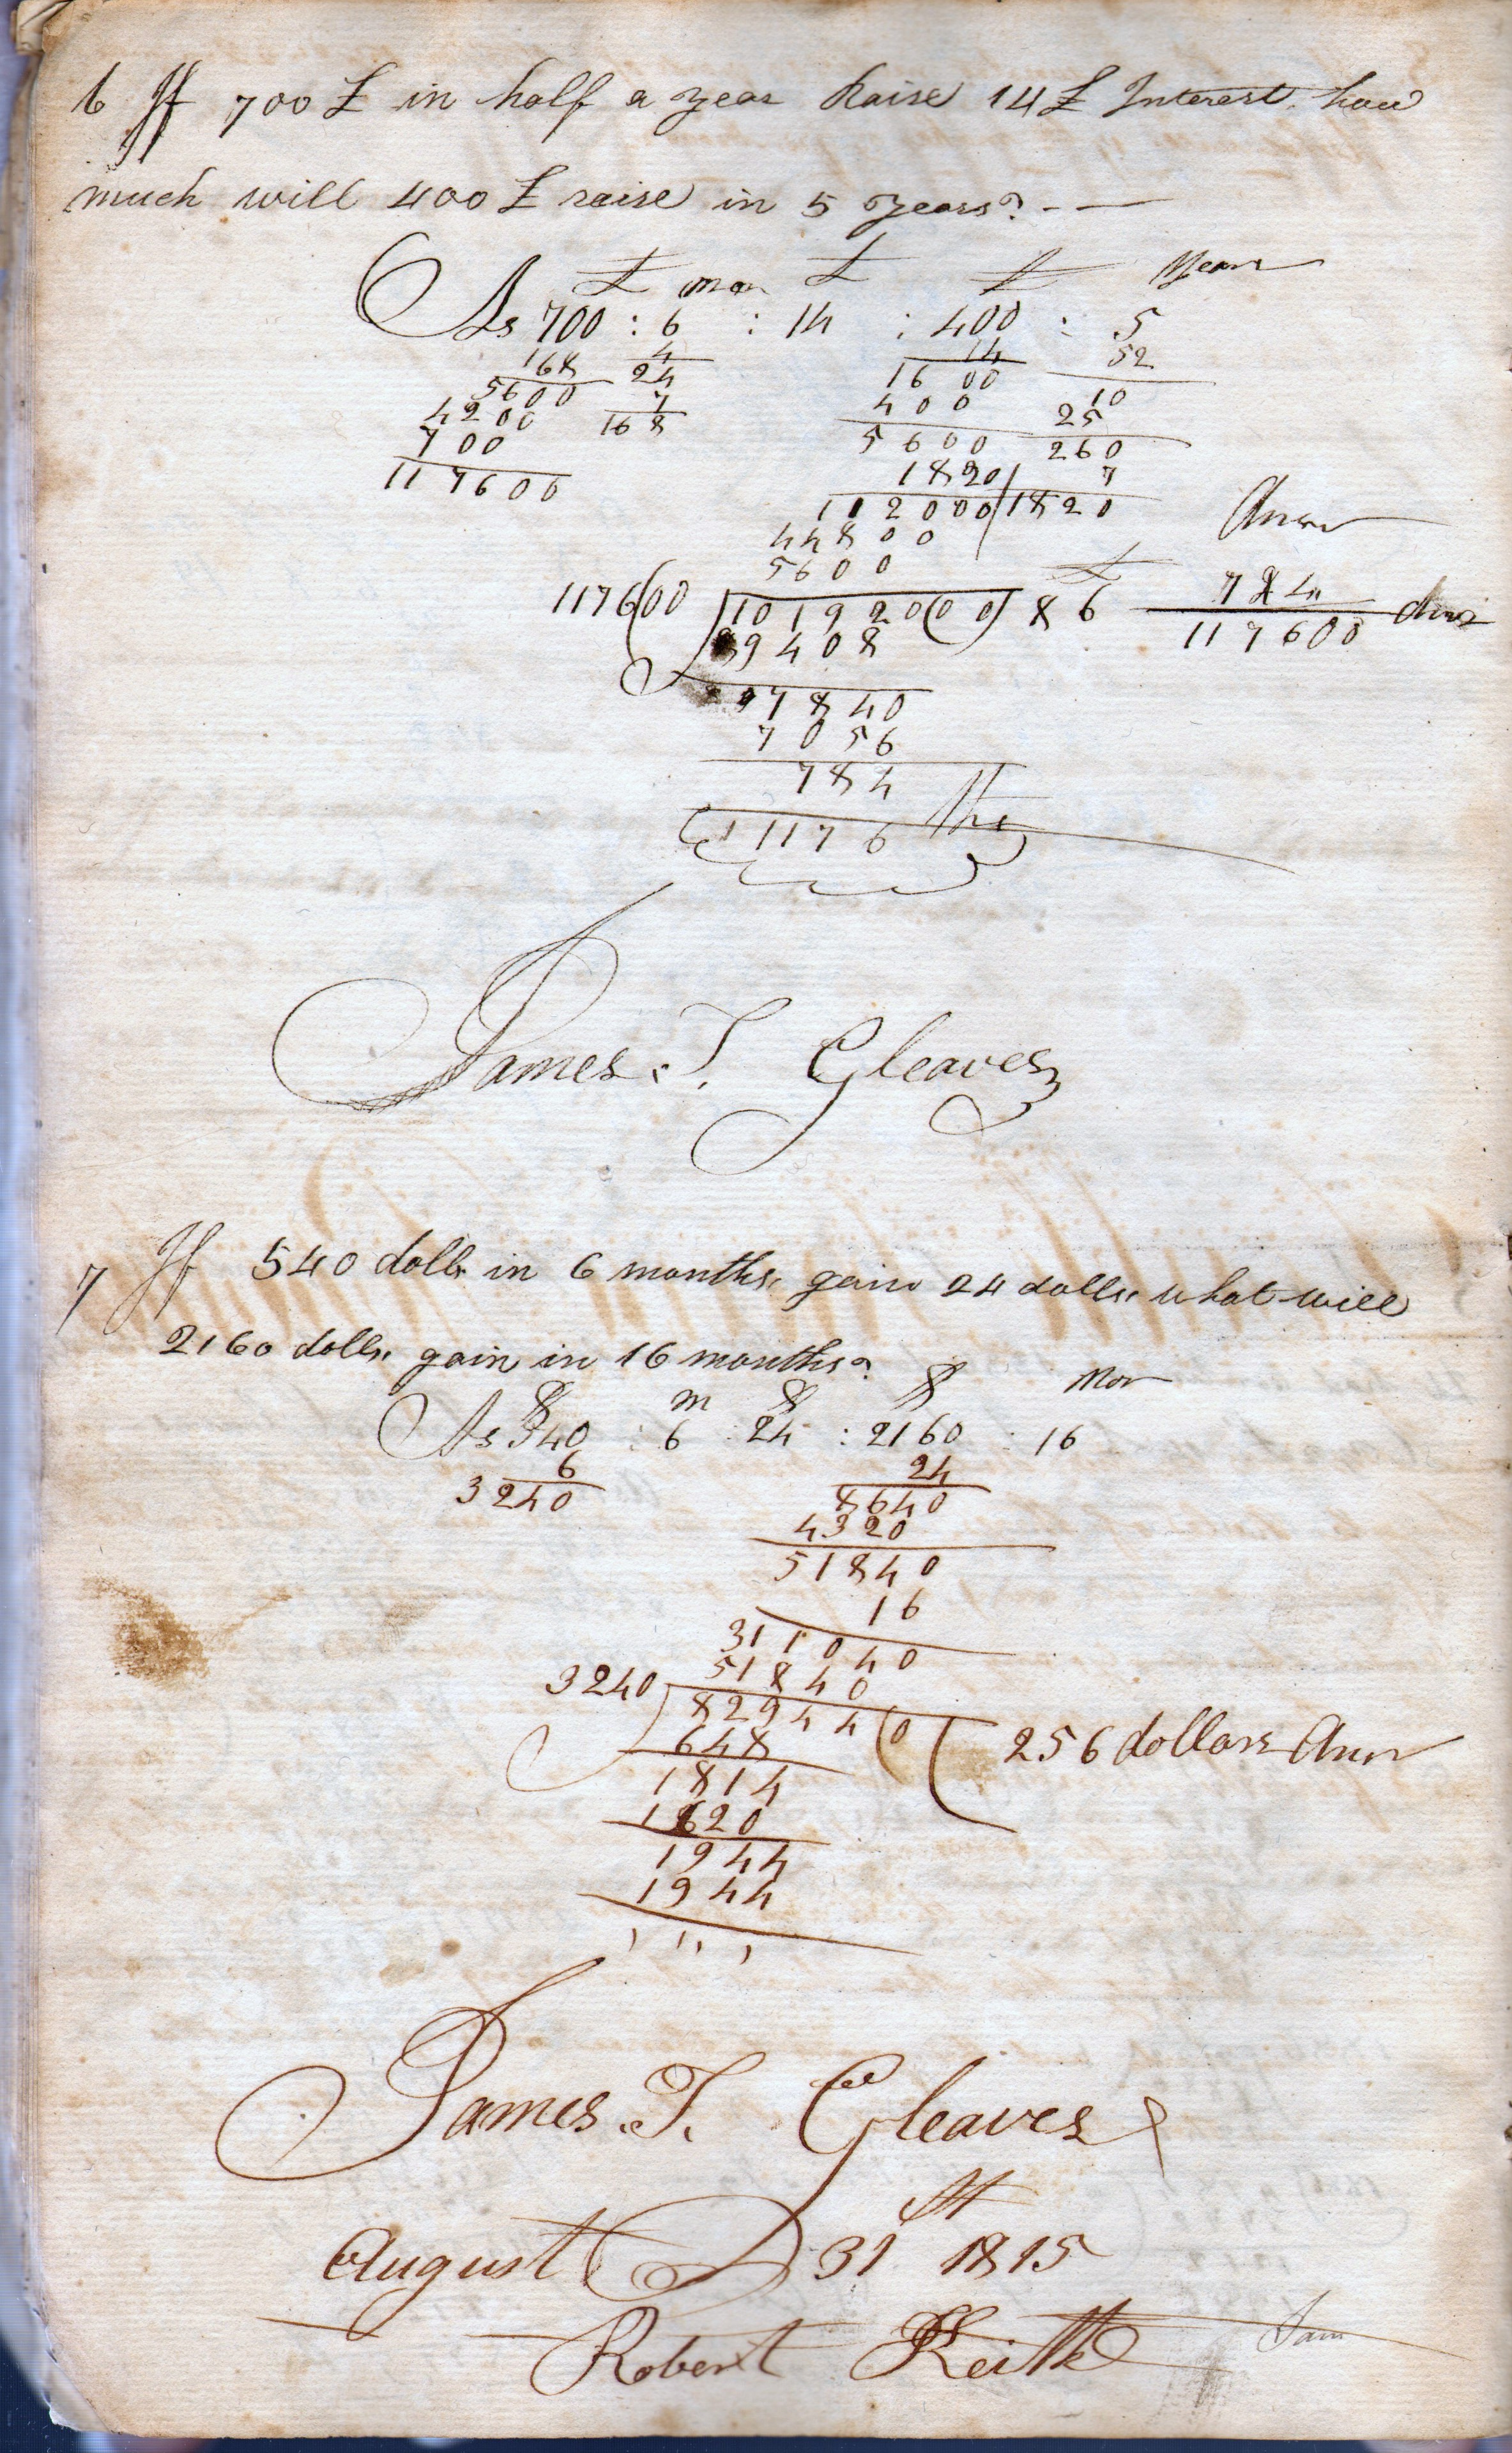 6 If 700 £ in half a year Raise 14 £ Interest how
much will 400 £ raise in 5 years? - —
£ mon £ £ Years
As 700 : 6 : 14 : 400 : 5
168 4 14 52
5600 24 1600 10
4200 7 400 25
700 168 5600 260
117600 1820 7
112000 1820
44800 Answ
5600 £
1176(00 101920(00) 86 784 Answ
9408 117600
97840
7056
784
1176
James. T. Gleaves
7 If 540 dolls in 6 months, gain 24 dolls, what will
2160 dolls, gain in 16 months?
$ m $ $ Mon
As 540 : 6 : 24 : 2160 : 16
6 24
3240 8640
4320
51840
16
311040
51840
3240 82944(0 ( 256 dollars Answ
648
1814
1620
1944
1944
James. T. Gleaves
August 31 st 1815
Robert Keith